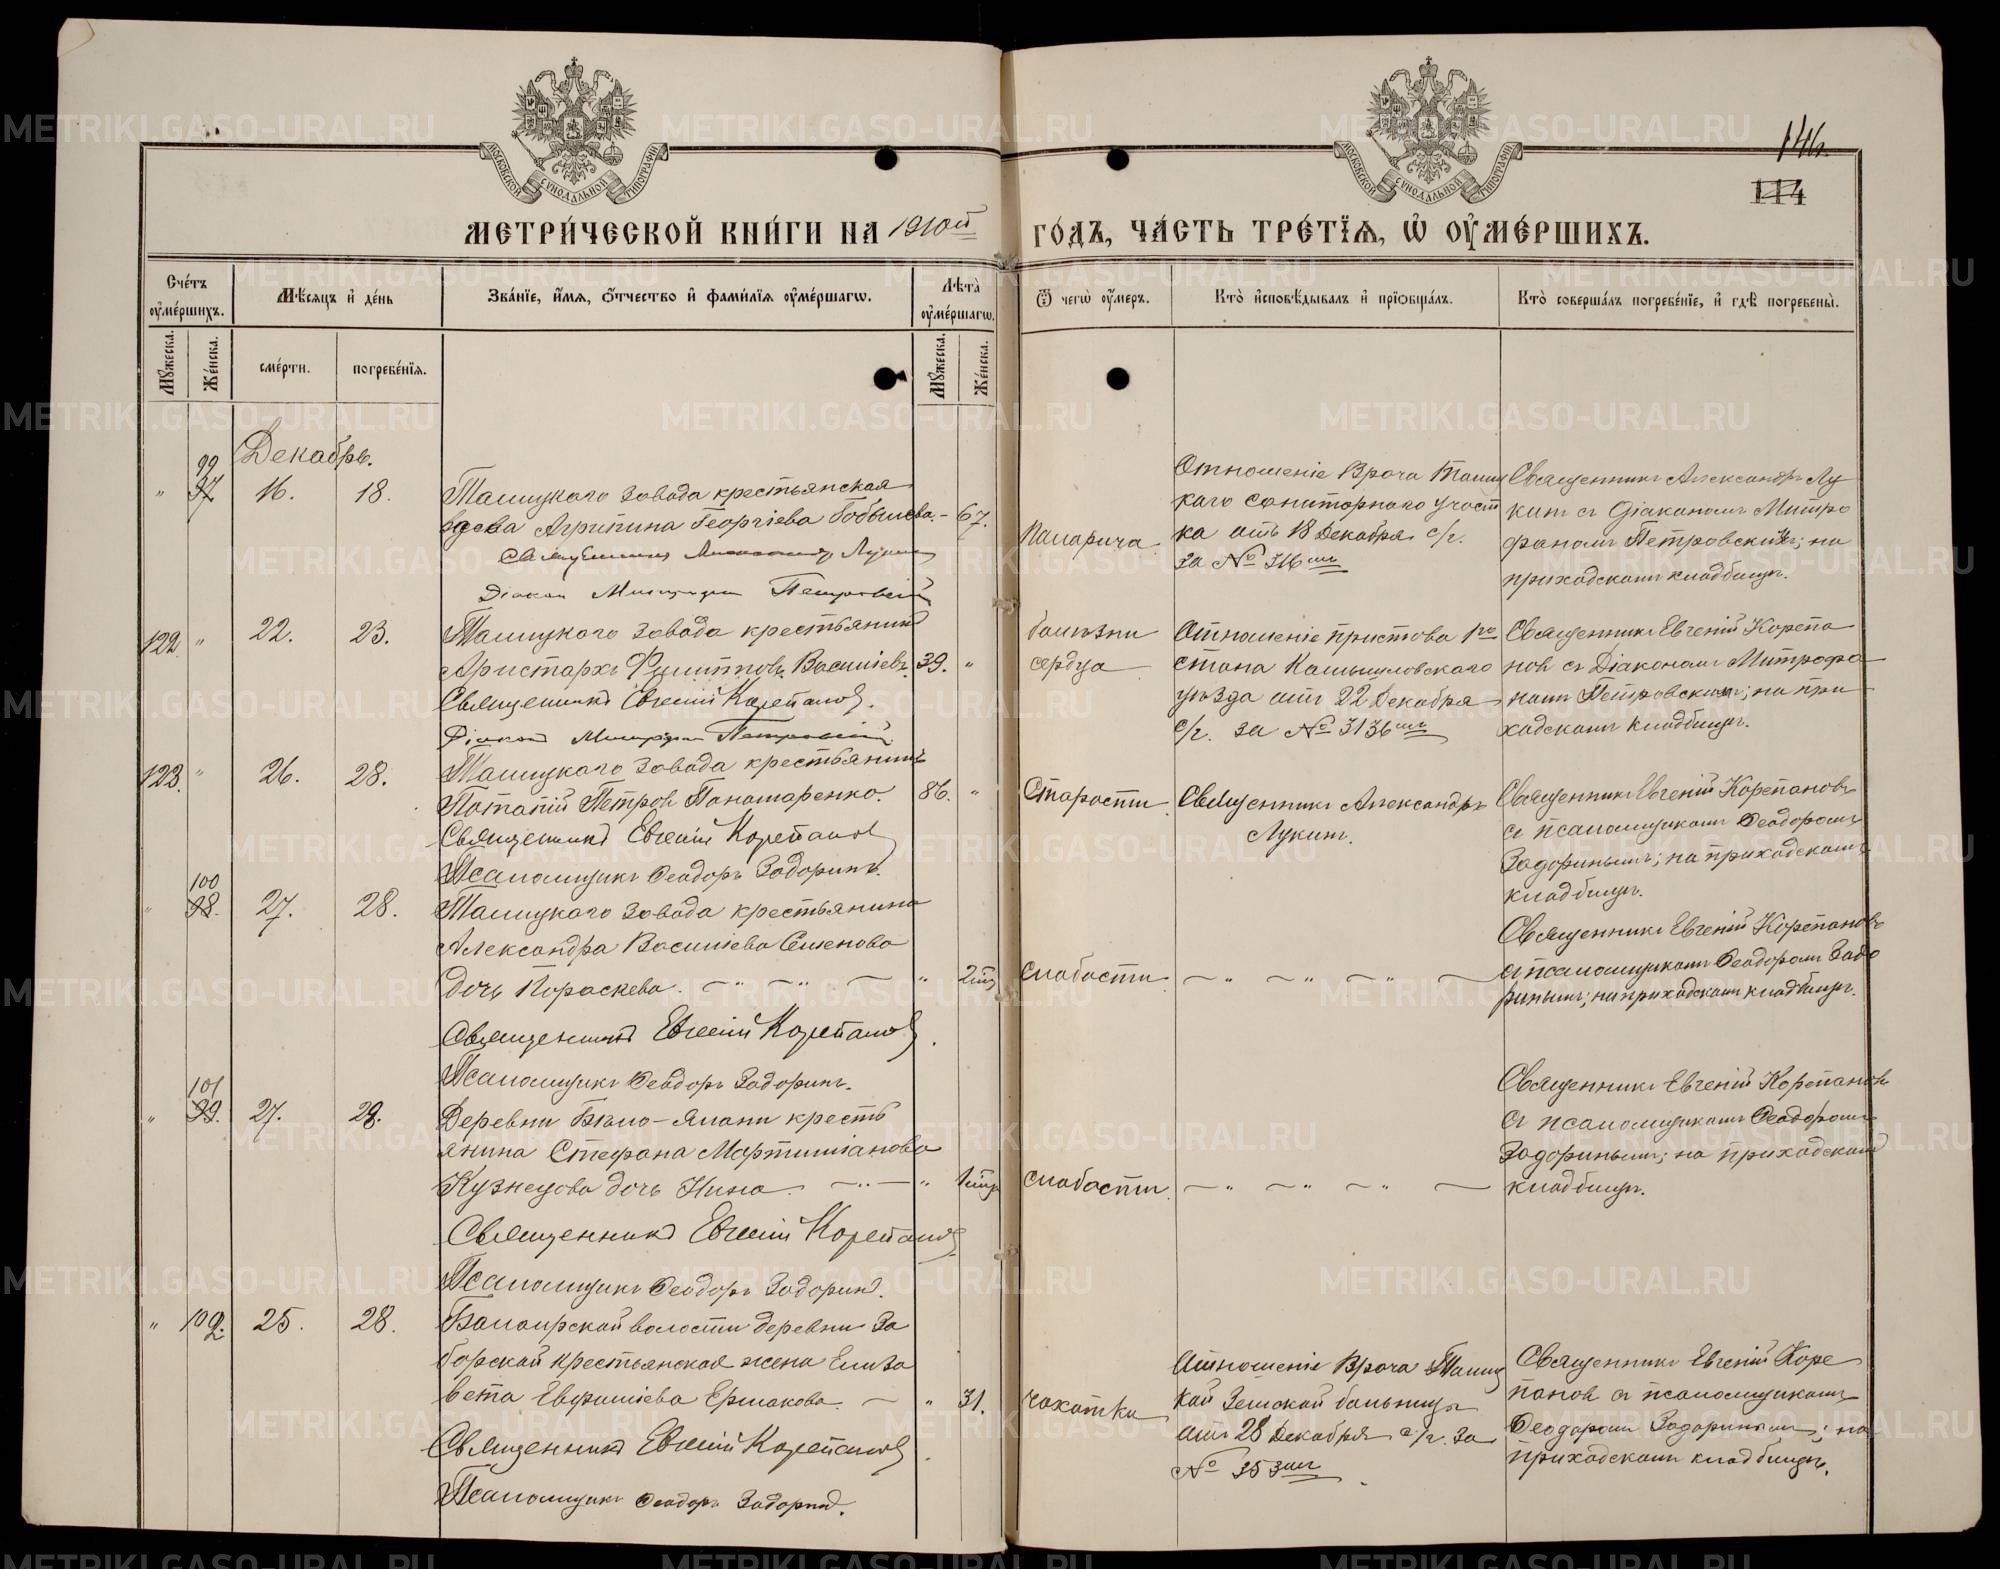 МОСКОВСКОЙ СѴНОДАЛЬНОЙ ТИПОГРАФІИ
МОСКОВСКОЙ СѴНОДАЛЬНОЙ ТИПОГРАФІИ
146.
144
МЕТРИ́ЧЕСКОЙ КНИ́ГИ НА 1910ый ГО́ДЪ, ЧА́СТЬ ТРЕ́ТЇѦ, Ѡ ОУ҆МЕ́РШИХЪ.
Сче́тъ оу҆ме́ршихъ.
Мꙋ́жеска.
Же́нска.
Мѣ́сѧцъ и҆ де́нь
сме́рти.
погребе́нїѧ.
Зва́нїе, и҆́мѧ, ѻ҆́тчество и҆ фами́лїѧ оу҆ме́ршагѡ.
Лѣ́та оу҆ме́ршагѡ.
Мꙋ́жеска.
Же́нска.
Ѿ чегѡ̀ оу҆́меръ.
Кто̀ и҆сповѣ́дывалъ и҆ прїѻбща́лъ.
Кто̀ соверша́лъ погребе́нїе, и҆ гдѣ̀ погребены̀.
Декабрь.
" 99 97 16. 18.
Талицкаго завода крестьянская
вдова Агрипина Георгіева Бобылева. – 67.
Священникъ Александръ Лукинъ
Діаконъ Митрофанъ Петровскій
Паларича
Отношеніе Врача Талиц
каго санитарнаго участ
ка отъ 18 Декабря с/г.
за № 316мъ
Священникъ Александръ Лу
кинъ съ Діакономъ Митро
фаномъ Петровскимъ; на
приходскомъ кладбищѣ.
122. " 22. 23.
Талицкаго завода крестьянинъ
Аристархъ Филипповъ Васильевъ. 39. "
Священникъ Евгеній Корепановъ.
Діаконъ Митрофанъ Петровскій.
болѣзни
сердца
Отношеніе пристава 1го
стана Камышловскаго
уѣзда отъ 22 Декабря
с/г. за № 3136мъ
Священникъ Евгеній Корепа
новъ съ Діакономъ Митрофа
номъ Петровскимъ; на при
ходскомъ кладбищѣ.
123. " 26. 28.
Талицкаго завода крестьянинъ
Потапій Петровъ Пономаренко. 86. "
Священникъ Евгеній Корепановъ
Псаломщикъ Ѳеодоръ Задоринъ.
Старости
Священникъ Александръ
Лукинъ.
Священникъ Евгеній Корепановъ
съ псаломщикомъ Ѳеодоромъ
Задоринымъ; на приходскомъ
кладбищѣ.
" 100 98. 27. 28.
Талицкаго завода крестьянина
Александра Васильева Семенова
дочь Параскева. – " – " – " 2
Священникъ Евгеній Корепановъ.
Псаломщикъ Ѳеодоръ Задоринъ.
слабости
– " – " – " –
Священникъ Евгеній Корепановъ
съ псаломщикомъ Ѳеодоромъ Задо
ринымъ; на приходскомъ кладбищѣ.
" 101 99. 27. 29.
Деревни Бѣло-Яланъ кресть
янина Стефана Мартиніанова
Кузнецова дочь Нина. – " – " 1
Священникъ Евгеній Корепановъ
Псаломщикъ Ѳеодоръ Задоринъ.
слабости
– " – " – " –
Священникъ Евгеній Корепановъ
съ псаломщикомъ Ѳеодоромъ
Задоринымъ; на приходскомъ
кладбищѣ.
" 102. 25. 28.
Балаирской волости деревни За
борской крестьянская жена Елиза
вета Евфиміева Ермакова. – " 31.
Священникъ Евгеній Корепановъ.
Псаломщикъ Ѳеодоръ Задоринъ.
Чахотки
Отношеніе Врача Талиц
кой Земской больницы
отъ 28 Декабря с/г. за
№ 353мъ
Священникъ Евгеній Коре
пановъ съ псаломщикомъ
Ѳеодоромъ Задоринымъ; на
приходскомъ кладбищѣ.
METRIKI.GASO-URAL.RU